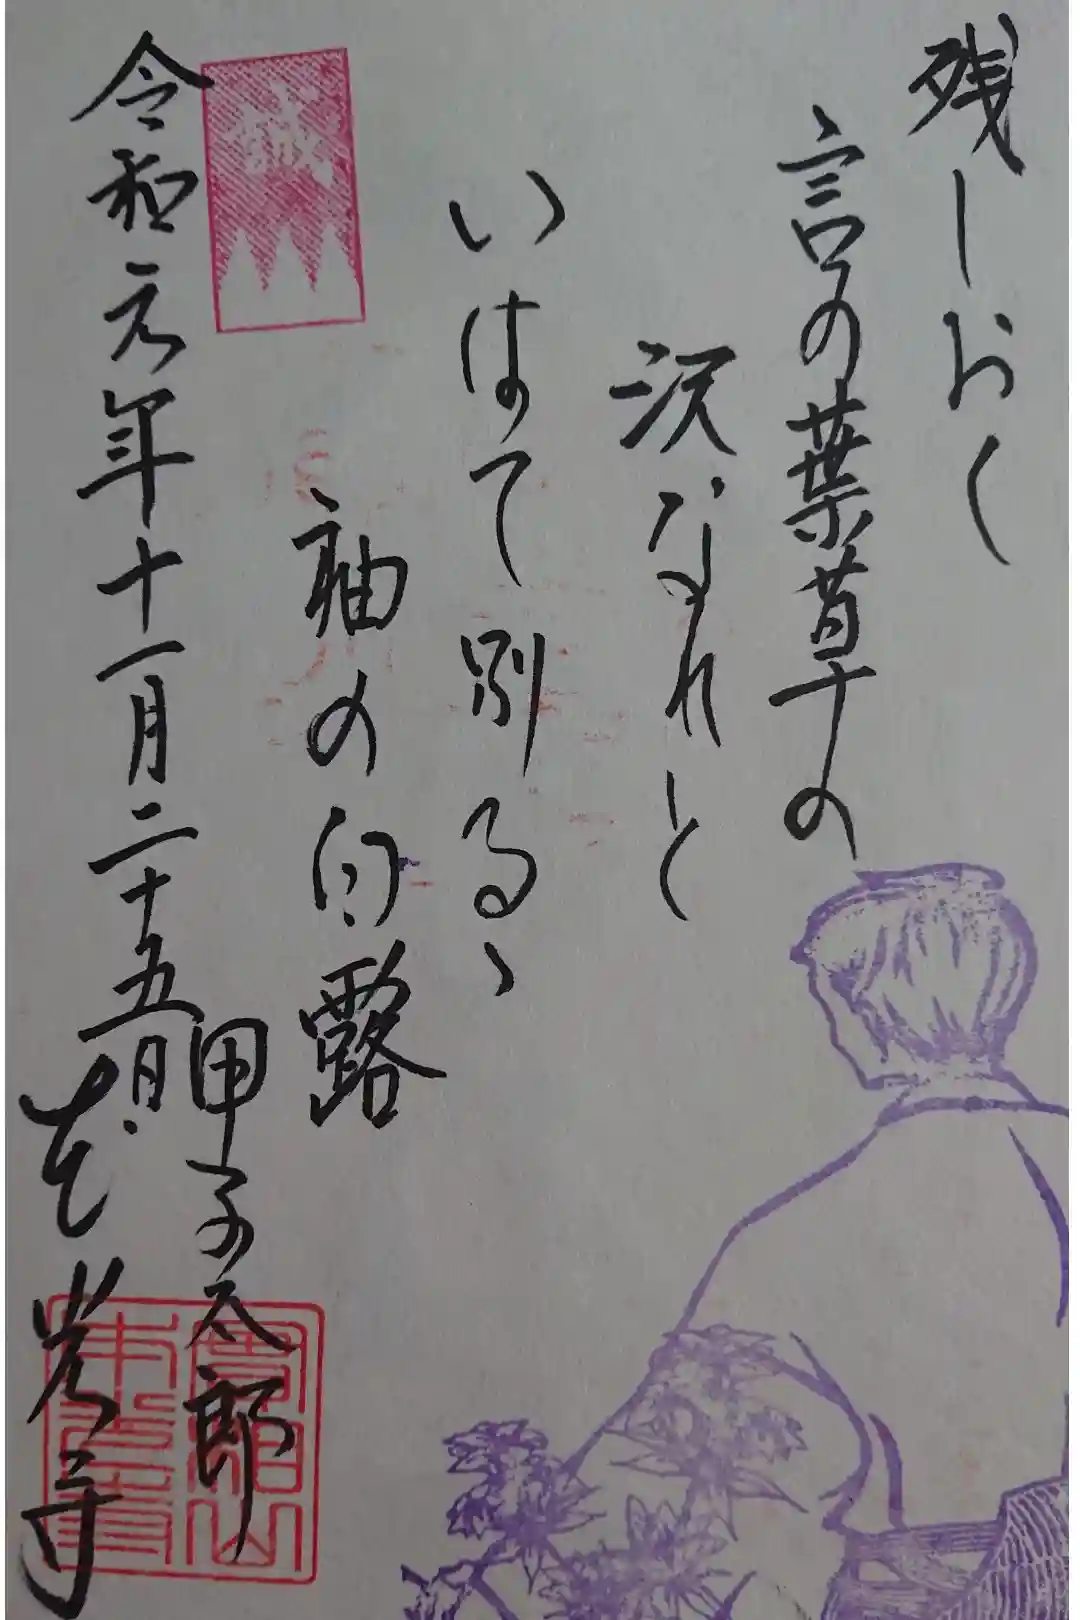 残しおく
言の葉草の
沢なれと
いはて別るゝ
袖の白露
甲子太郎
誠
令和元年十一月二十五日
光寺